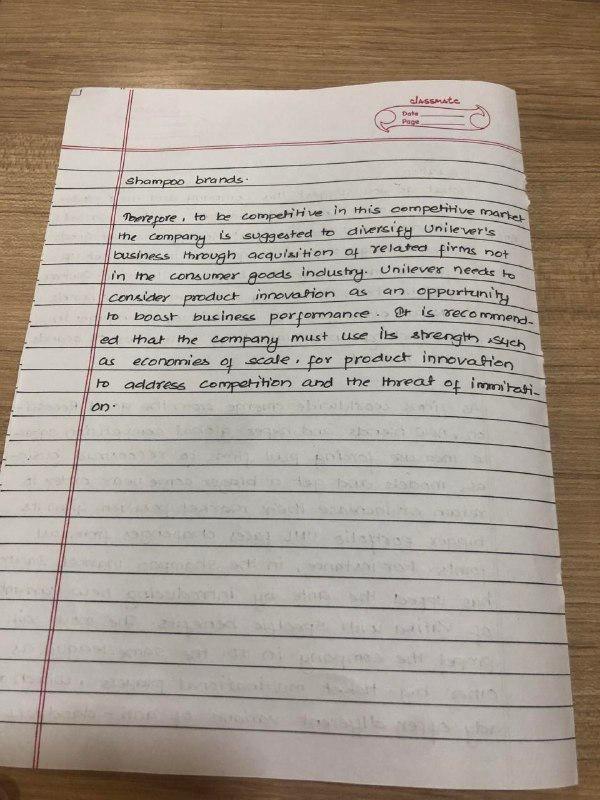 classmate
Date
Page
Shampoo brands.
Therefore, to be competitive in this competitive market
the company is suggested to diversify Unilever's
business through acquisition of related firms not
in the consumer goods industry. Unilever needs to
consider product innovation as an oppurtunity
to boost business performance. It is recommend-
ed that the company must use its strength, such
as economies of scale, for product innovation
to address competition and the threat of immitati-
on.